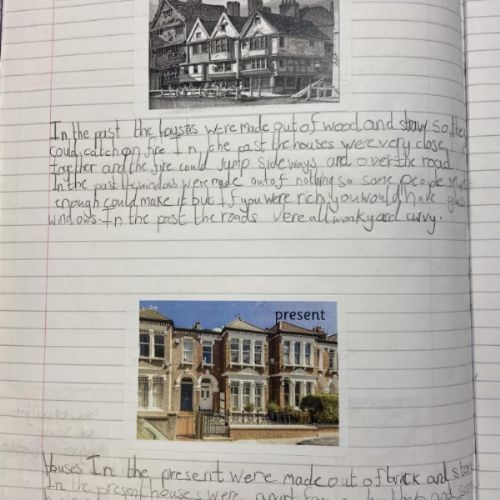 In the past the houses were made out of wood and straw so they
could catch on fire In the past the houses were very close
together and the fire could jump sideways and over the road
In the past the windows were made out of nothing so some people
enough could make it but if you were rich you would have
windows. In the past the roads were all wonky and curvy.
present
Houses In the present were made out of brick and
In the present houses were apart